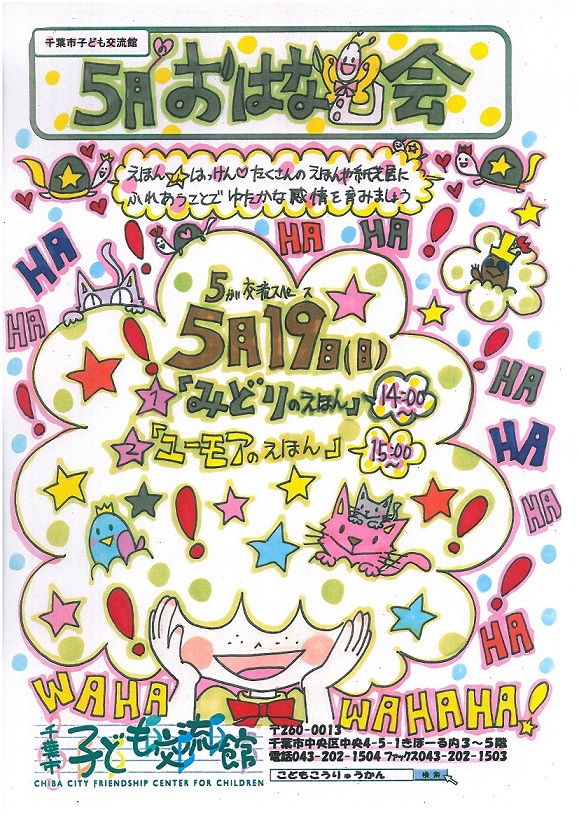 千葉市子ども交流館
の
5月おはなし会
えほん☆はっけん♡たくさんのえほんや紙芝居に
ふれあうことでゆたかな感情を育みましょう
HA
HA
HA
HA
5かい交流スペース
5月19日(日)
1「みどりのえほん」14:00~
2「ユーモアのえほん」15:00~
HA
HA
HA
HA
WAHA
WAHAHA!
千葉市
子ども交流館
CHIBA CITY FRIENDSHIP CENTER FOR CHILDREN
〒260-0013
千葉市中央区中央4-5-1きぼーる内3~5階
電話043-202-1504 ファックス043-202-1503
こどもこうりゅうかん 検索